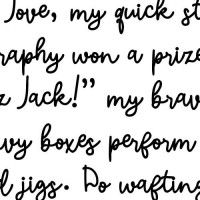 love, my quick st
raphy won a prize
z Jack!" my brav
vy boxes perform
d jigs. Do wafting